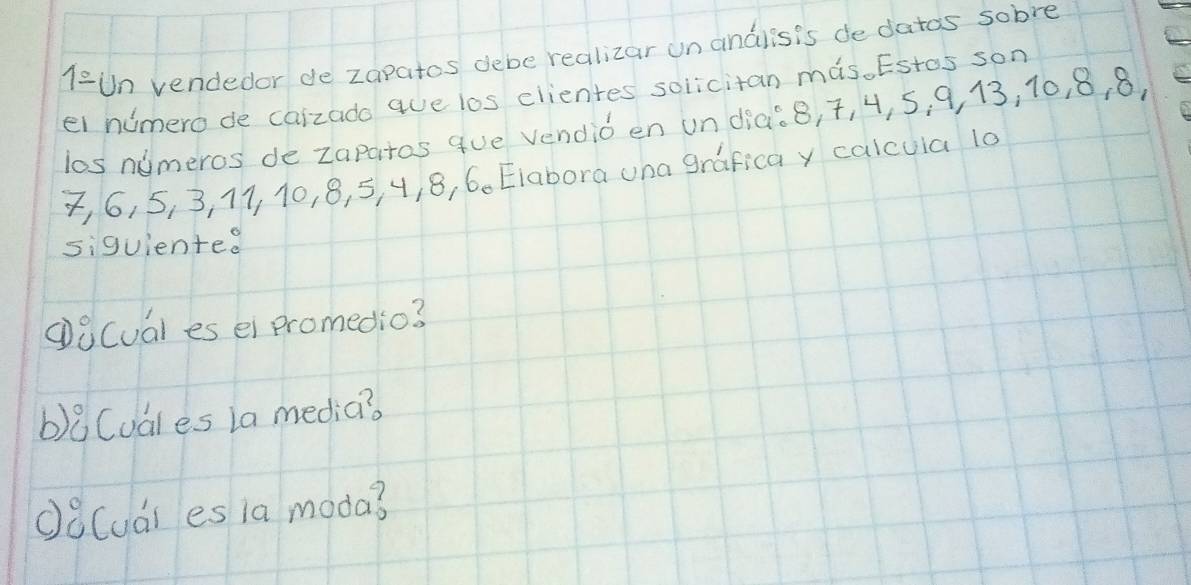 1-Un vendedor de zapatos debe realizar un análisis de datos sobre
el número de calzado que los clientes solicitan más. Estos son
los números de zapatos que vendió en un día: 8, 7, 4, 5, 9, 13, 10, 8, 8,
7, 6, 5, 3, 11, 10, 8, 5, 4, 8, 6. Elabora una gráfica y calcula lo
siguiente:
a) ¿Cuál es el promedio?
b) ¿Cuál es la media?
c) ¿Cuál es la moda?